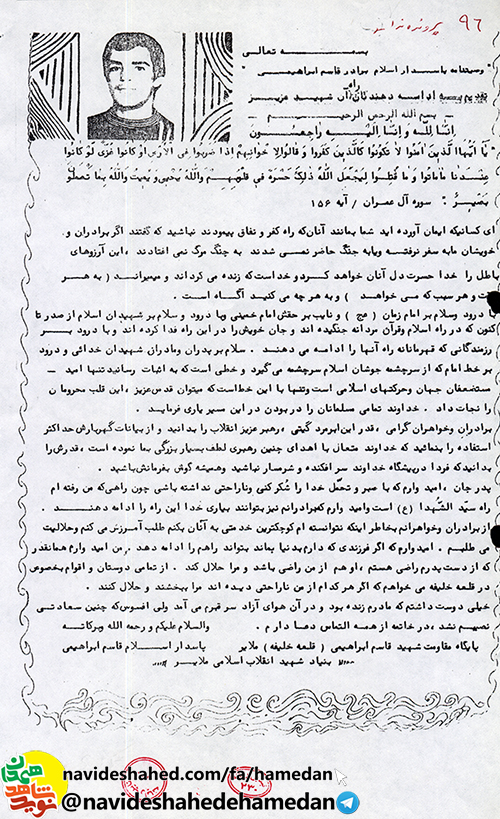 ۹۶ پرونده
بسمه تعالی
" وصیتنامه پاسدار اسلام برادر قاسم ابراهیمی "
تقدیم به ادامه دهندگان راه آن شهید عزیز
بسم الله الرحمن الرحیم
اِنّا لِلّه وَ اِنّا اِلَیْهِ راجِعُون
" یا اَیُّهَا الَّذینَ آمَنُوا لا تَکُونُوا کَالَّذینَ کَفَرُوا وَ قالُوا لِاخْوانِهِمْ اِذا ضَرَبُوا فِی الْاَرْضِ اَوْ کانُوا غُزًّی لَوْ کانُوا
عِنْدَنا ماماتُوا وَ ما قُتِلُوا لِیَجْعَلَ اللّهُ ذلِکَ حَسْرَةً فی قُلُوبِهِمْ وَاللّهُ یُحْیی وَ یُمیتُ وَاللّهُ بِما تَعْمَلُونَ
بَصیرٌ " سوره آل عمران / آیه ۱۵۶
ای کسانیکه ایمان آورده اید شما بمانند آنان که راه کفر و نفاق پیمودند نباشید که گفتند اگر برادران و
خویشان ما به سفر نرفته و یا به جنگ حاضر نمی شدند به چنگ مرگ نمی افتادند ، این آرزوهای
باطل را خدا حسرت دل آنان خواهد کرد و خداست که زنده می گرداند و میمیراند ( به هر
و هر سبب که می خواهد ) و به هر چه می کنید آگاه است .
با درود و سلام بر امام زمان ( عج ) و نایب بر حقش امام خمینی و با درود و سلام بر شهیدان اسلام از صدر تا
کنون که در راه اسلام و قرآن مردانه جنگیده اند و جان خویش را در این راه فدا کرده اند و با درود بر
رزمندگانی که قهرمانانه راه آنها را ادامه می دهند . سلام بر پدران و مادران شهیدان خدائی و درود
بر خط امام که از سرچشمه جوشان اسلام سرچشمه می گیرد و خطی است که به اثبات رسانید تنها امید
مستضعفان جهان و حرکتهای اسلامی است و تنها با این خط است که میتوان قدس عزیز ، این قلب محرومان
را نجات داد . خداوند تمامی مسلمانان را در بودن در این مسیر یاری فرماید .
برادران و خواهران گرامی ، قدر این ابرمرد گیتی ، رهبر عزیز انقلاب را بدانید و از بیانات گهربارش حداکثر
استفاده را بنمائید که خداوند متعال با اهدای چنین رهبری لطف بسیار بزرگی بما نموده است ، قدرش را
بدانید که فردا در پیشگاه خداوند سر افکنده و شرمسار نباشید و همیشه گوش بفرمانش باشید .
پدر جان ، امید وارم که با صبر و تحمل خدا را شکر کنی و ناراحتی نداشته باشی چون راهی که من رفته ام
راه سید الشهدا (ع) است و امید وارم که برادرانم نیز بتوانند بیاری خدا این راه را ادامه دهند .
از برادران و خواهرانم بخاطر اینکه نتوانسته ام کوچکترین خدمتی به آنان بکنم طلب آمرزش می کنم و حلالیت
می طلبم . امید وارم که اگر فرزندی که دارم بدنیا بماند بتواند راهم را ادامه دهد . من امید وارم همانقدر
که از دست پدرم راضی هستم ، او هم از من راضی باشد و مرا حلال کند . از تمامی دوستان و اقوام بخصوص
در قلعه خلیفه می خواهم که اگر هر کدام از من ناراحتی دیده اند مرا ببخشند و حلال کنند .
خیلی دوست داشتم که مادرم زنده بود و در آن هوای آزاد سر قبرم می آمد ولی افسوس که چنین سعادتی
نصیبم نشد ، در خاتمه از همه التماس دعا دارم . والسلام علیکم و رحمه الله و برکاته
پایگاه مقاومت شهید قاسم ابراهیمی ( قلعه خلیفه ) ملایر پاسدار اسلام قاسم ابراهیمی
بنیاد شهید انقلاب اسلامی ملایر
navideshahed.com/fa/hamedan
@navideshahedehamedan
نوید شاهد همدان